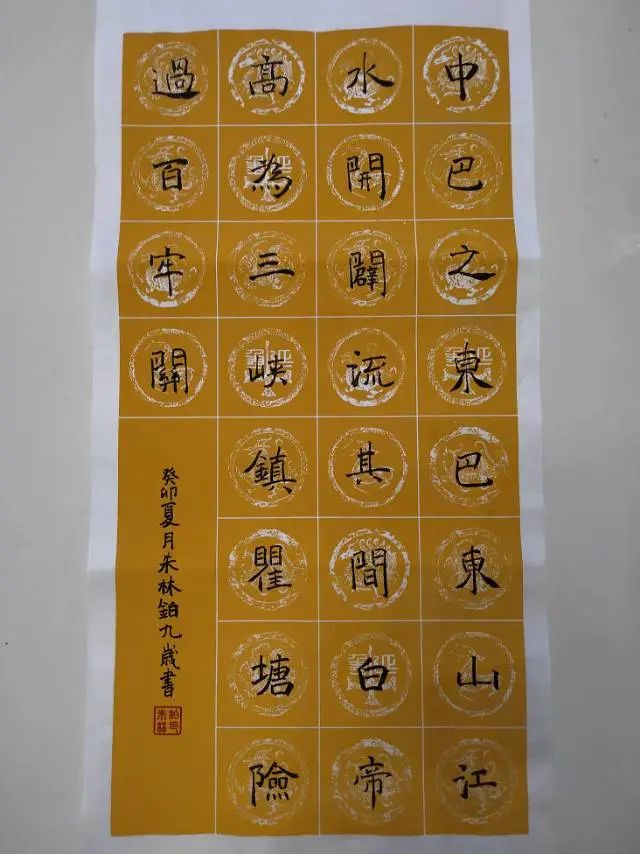 中巴之東巴東山江
水開闢流其間白帝
高為三峽鎮瞿塘險
過百牢關
癸卯夏月朱林鉑九歲書